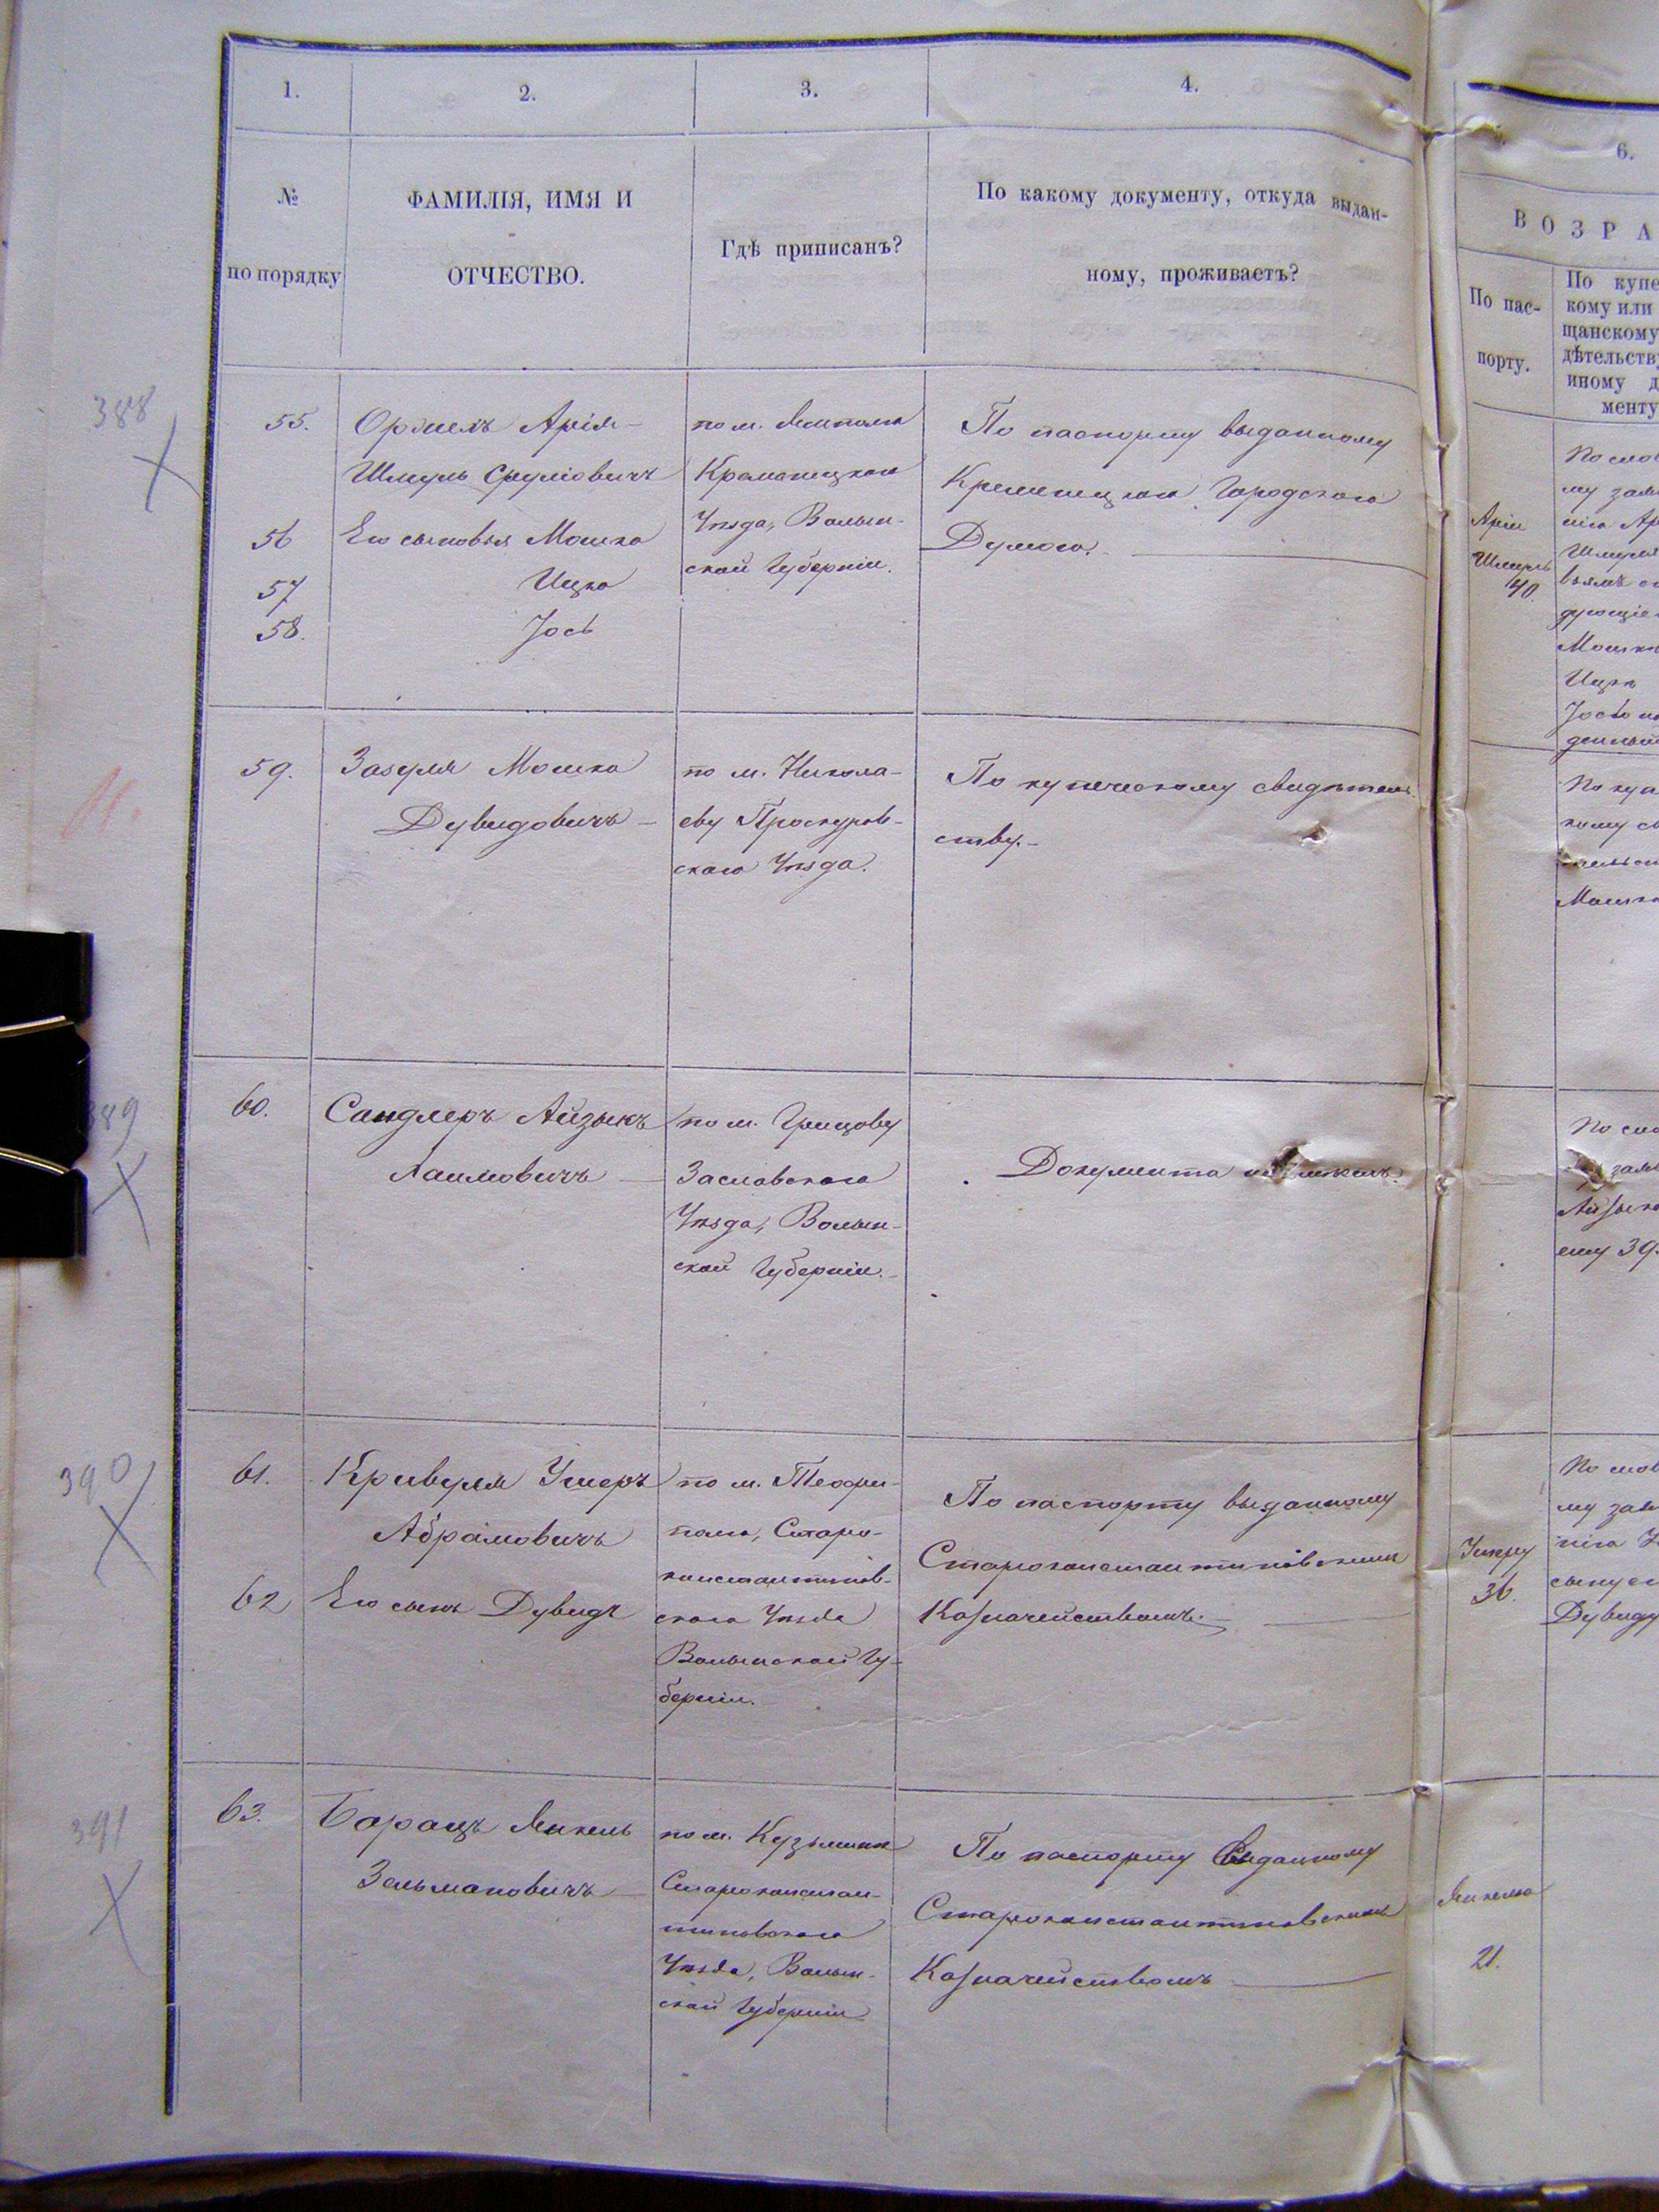 1.
2.
3.
4.
№
по порядку
ФАМИЛІЯ, ИМЯ И
ОТЧЕСТВО.
Гдѣ приписанъ?
По какому документу, откуда выдан-
ному, проживаетъ?
388
55.
Арія-
Шмуль Срулiовичъ
56
Его сыновья Мошко
57
Ицко
58.
Іось
по м.
Кременецкаго
Уѣзда, Волын-
ской Губерніи.
По паспорту выданному
Кременецкою Городскою
Думою.
59.
Зозуля Мошко
Дувидовичъ
по м. Никола-
еву Проскуров-
скаго Уѣзда.
По купеческому свидѣтель-
ству.
389
60.
Сандлеръ Айзыкъ
Хаимовичъ
по м. Грицову
Заславскаго
Уѣзда, Волын-
ской Губерніи.
Документа не имѣетъ.
390
61.
Кривуля Ушеръ
Абрамовичъ
62
Его сынъ Дувидъ
по м. Теофи-
поля, Старо-
константинов-
скаго Уѣзда
Волынской Гу-
берніи.
По паспорту выданному
Староконстантиновскимъ
Казначействомъ.
391
63.
Барацъ Михель
Зельмановичъ
по м. Кузьмин
Староконстан-
тиновскаго
Уѣзда, Волын-
ской Губерніи
По паспорту выданному
Староконстантиновскимъ
Казначействомъ
6.
ВОЗРА
По пас-
порту.
По купе
кому или
щанскому
дѣтельству
иному д
менту
Арiи
Шмулю
40.
По сло
му зая
нiю Ар
Шмуля
дующiе
Мошко
Ицко
По куп
кому св
Мошко
По сло
зая
Айзыко
ему 39.
Ушеру
36.
По слов
му зая
нiю У
сыну ег
Дувиду
Михелю
21.